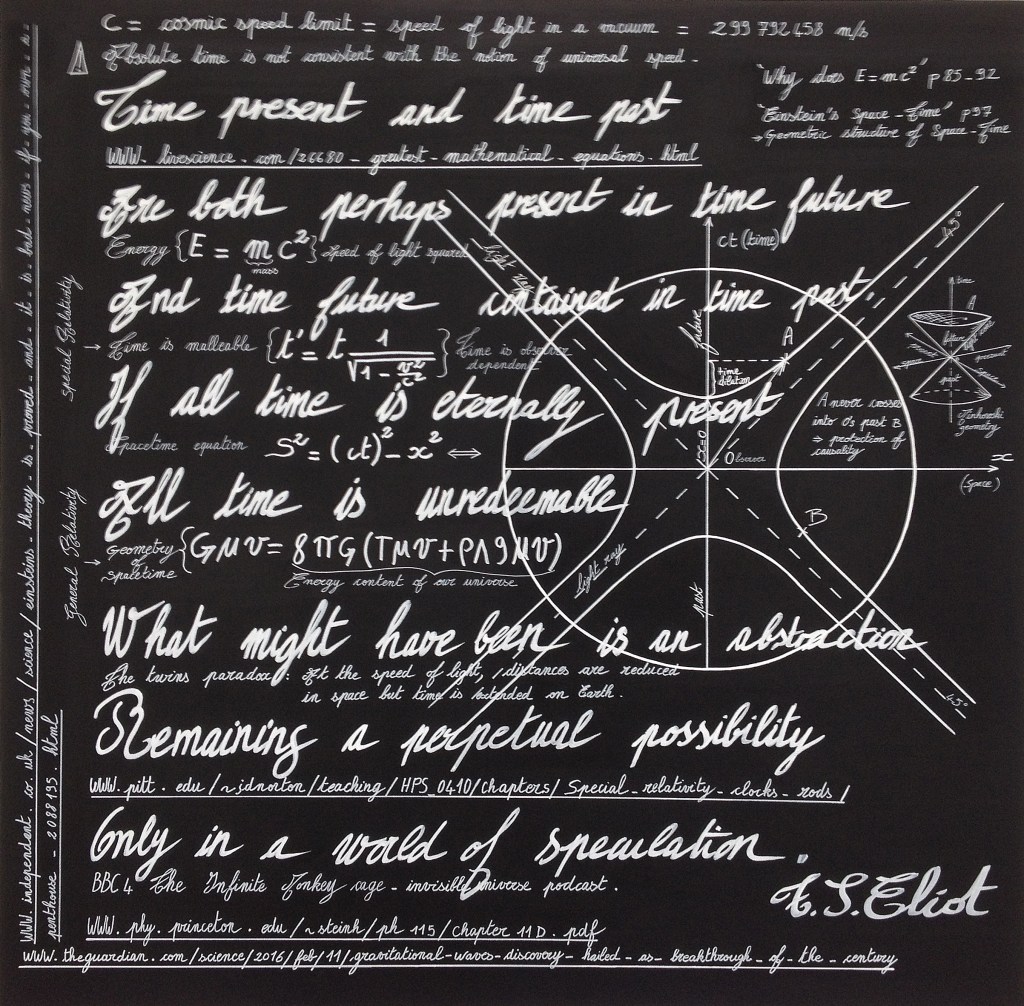 C = cosmic speed limit = speed of light in a vacuum = 299 792 458 m/s
Absolute time is not consistent with the notion of universal speed.
"Why does E=mc²" p 85-92
"Einstein's Space-Time" p 97
→ Geometric structure of Space-Time
Time present and time past
WWW. livescience . com/26680 _ greatest _ mathematical _ equations . html
Are both perhaps present in time future
Energy { E = m c² } Speed of light squared
mass
ct (time)
light ray
45°
And time future contained in time past
Special Relativity
→ Time is malleable { t' = t 1/√1 - v²/c² } Time is observer dependent
future
A
time dilation
time
A
future
present
past
Minkowski geometry
If all time is eternally present
Spacetime equation S² = (ct)² - x² ⇔
A never crosses
into O's past B
⇒ protection of
causality
x=0
Observer
x
(space)
All time is unredeemable
General Relativity
→ Geometry of spacetime { Gμν = 8πG (Tμν + ρΛgμν)
Energy content of our universe
B
light ray
past
What might have been is an abstraction
The twins paradox : At the speed of light, distances are reduced
in space but time is extended on Earth .
45°
Remaining a perpetual possibility
WWW. pitt . edu /~jdnorton /teaching/ HPS_0410/chapters/ Special _ relativity _ clocks _ rods /
Only in a world of speculation .
BBC 4 The Infinite Monkey cage - invisible universe podcast .
T.S.Eliot
WWW. phy. princeton . edu /~steinh/ph 115/chapter 11D . pdf
WWW. theguardian . com/science/2016/feb/11/gravitational-waves-discovery _ hailed _ as _ breakthrough _ of _ the _ century
WWW. independent . co. uk /news/science/einsteins _ theory _ is _ proved _ and _ it _ is _ bad _ news _ if _ you _ own _ a _
penthouse _ 2088195 . html